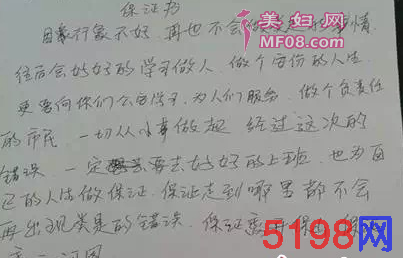 保证书
自家行象不好 再也不会做 事情
往后会好好的学习做人 做个安份的人生
更要向你们公安学习 为人们服务 做个负责任
的市民 一切从小事做起 经过这次的
错误 一定要去好好的上班 也为自
己的人生做保证 保证走到哪里都不会
再出现类是的错误 保证
美妇网
MF08.com
5198网